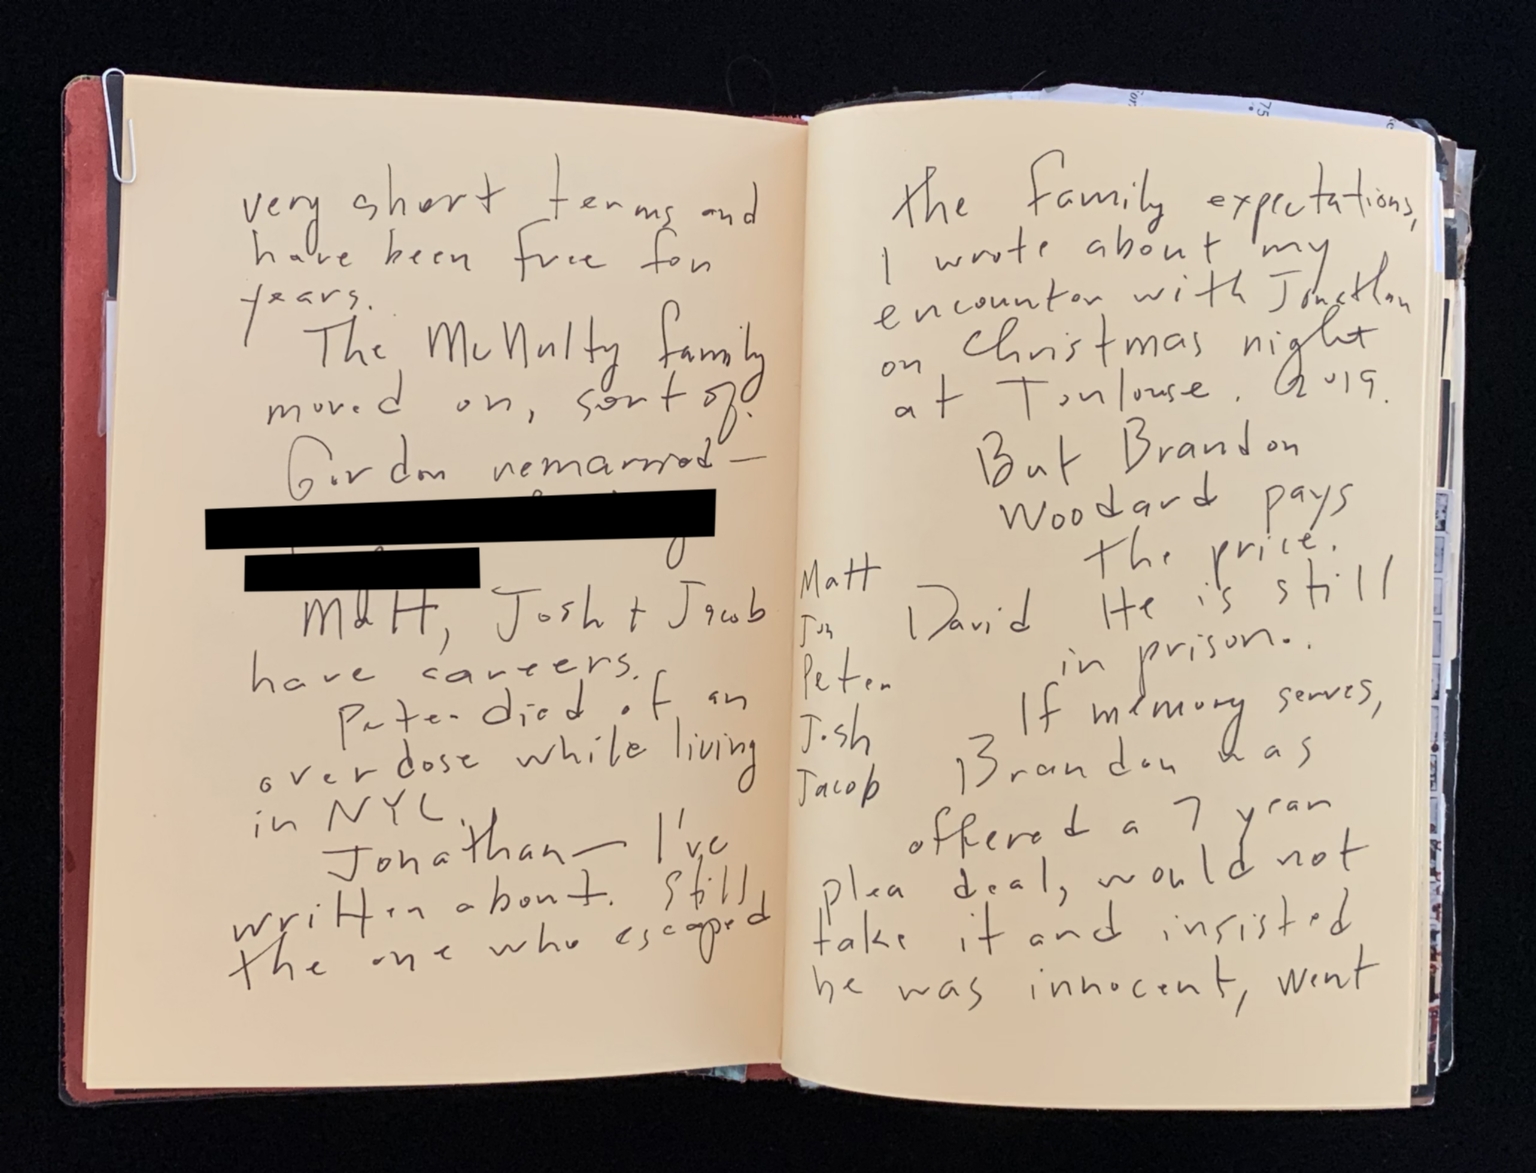 very short terms and
have been free for
years.
The McNulty family
moved on, sort of.
Gordon remarried —
Matt, Josh + Jacob
have careers.
Peter died of an
overdose while living
in NYC.
Jonathan — I've
written about. Still,
the one who escaped
the family expectations,
I wrote about my
encounter with Jonathan
on Christmas night
at Toulouse. 2019.
But Brandon
Woodard pays
the price.
He is still
in prison.
Matt
Jon
Peter
Josh
Jacob
David
If memory serves,
Brandon was
offered a 7 year
plea deal, would not
take it and insisted
he was innocent, went